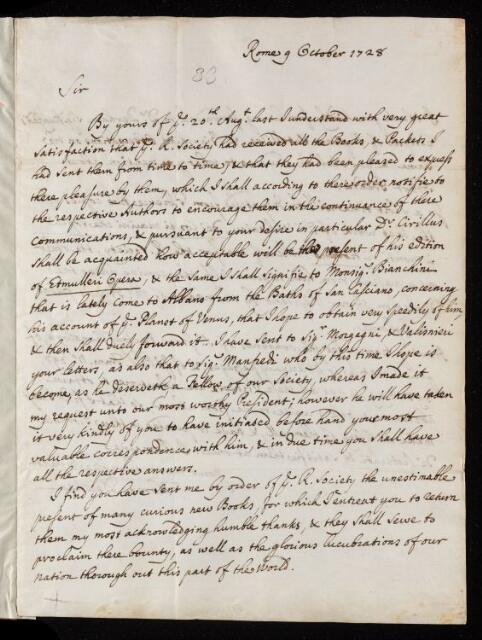 Rome 9 October 1728
33
Sir
By yours of yͤ. 20.th Aug.t last I understand with very great
Satisfaction that yͤ. R. Society had received all the Books, & Packets I
had sent them from time to time, & that they had been pleased to express
there pleasure by them, which I shall acording to there order notifie to
the respective Authors to encourage them in the continuance of there
communications, & pursuant to your desire in particular Dr. Cirillus
shall be acquainted how acceptable will be the present of his edition
of Etmulleri Opera, & the same I shall signifie to Monsigr. Bianchini
that is lately come to Albano from the Baths of San Casciano, concerning
his account of yͤ. Planet of Venus, that I hope to obtain very speedily of him
& then shall duely forward it. I have sent to Sigr. Morgagni, & Valisnieri
your letters, as also that to Sigr. Manfredi who by this time I hope is
become, as he deserveth a Fellow of our Society, whereas I made it
my request unto our most worthy President; however he will have taken
it very kindly of you to have initiated before hand your most
valuable correspondence with him, & in due time you shall have
all the respective answers.
I find you have sent me by order of yͤ. R. Society the unestimable
present of many curious new Books, for which I entreat you to return
them my most acknowledging humble thanks, & they shall serve to
proclaim there bounty, as well as the glorious lucubrations of our
nation thorough out this part of the World.